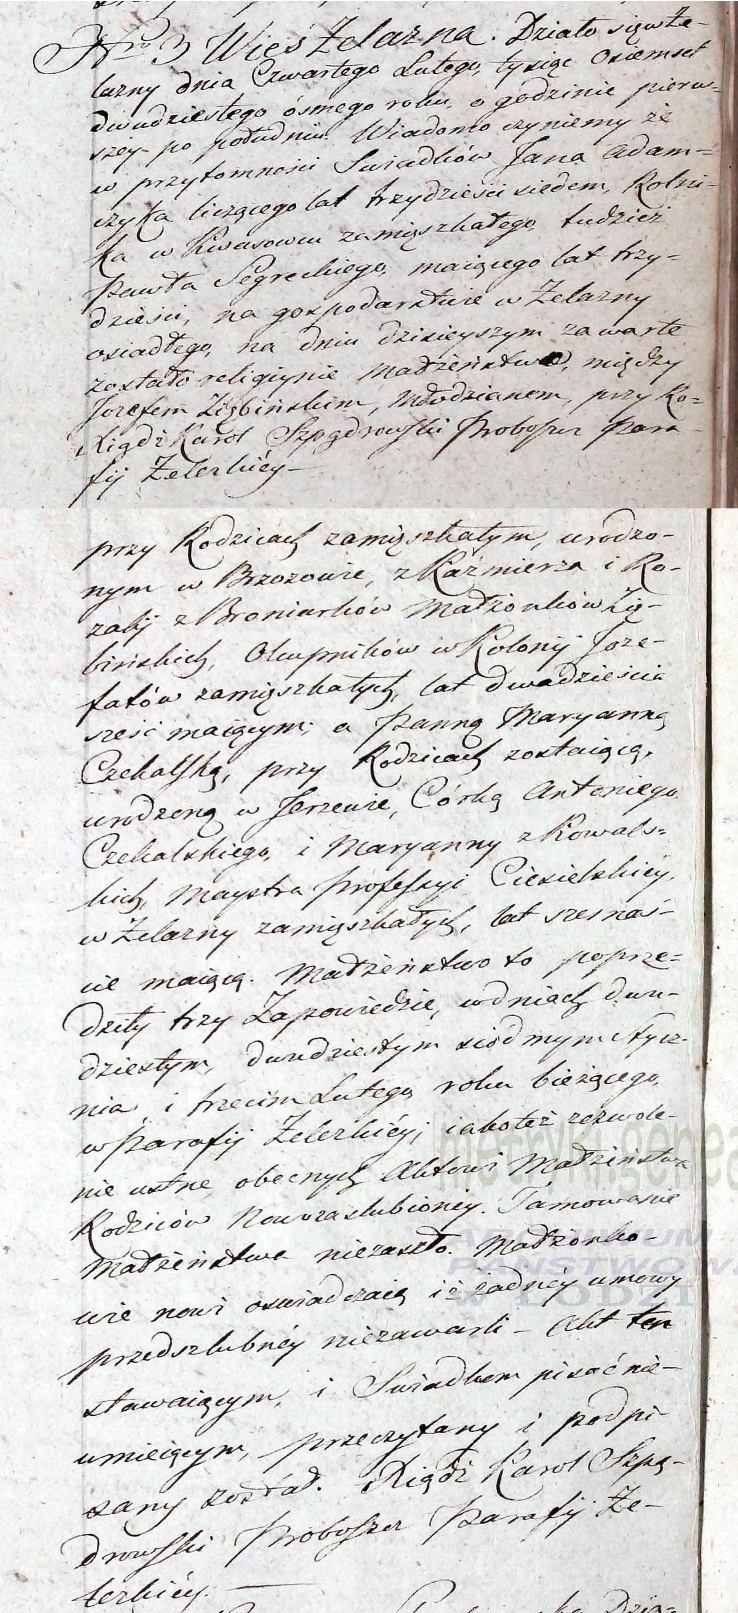 Nro 3 Wieś Żelazna. Działo się w Że-
lazny dnia Czwartego Lutego, tysiąc Osiemset
dwudziestego ósmego roku, o godzinie pierw-
szey po południu. Wiadomo czyniemy że
w przytomności Swiadków Jana Adam=
czyka liczącego lat trzydzieści siedem, Rolni-
ka w Kwasowcu zamięszkałego, tudzież
Pawła Segreckiego, maiącego lat trzy-
dzieści, na gospodarstwie w Żelazny
osiadłego, na dniu dzisieyszym zawarte
zostało religiynie małżeństwo, między
Jozefem Ziębińskim, Młodzianem, przy Ro=
Xiądz Karol Szpądrowski Proboszcz Para-
fij Żelerkiéy -
przy Rodzicach zamięszkałym, urodzo-
nym w Brzozowie, z Kaźmierza i Ro-
zalij z Broniarków Małżonków Zię-
bińskich, Okupników w Kolonij Joze-
fatów zamięszkałych, lat dwadzieścia
sześć maiącym; a Panną Maryanną
Czekalską, przy Rodzicach zostaiącą,
urodzoną w Jerzewie, Córką Antoniego
Czekalskiego, i Maryanny z Kowals-
kich, Maystra Professyi Ciesielskiéy,
w Żelazny zamięszkałych, lat szesnaś-
cie maiącą. Małżeństwo to poprze-
dziły trzy Zapowiedzie, w dniach dwu-
dziestym, dwudziestym siódmym Stycz-
nia, i trzecim Lutego roku bieżącego,
w Parafij Żelerkiéy; iakoteż zezwole-
nie ustne obecnych Aktowi Małżeństwa
Rodziców Nowozaslubionéy. Tamowanie
Małżeństwa niezaszło. Małżonko-
wie nowi oswiadczaią iż żadnéy umowy
przedslubnéy niezawarli - Akt ten
stawaiącym, i Swiadkom pisać nie-
umieiącym, przeczytany i podpi
sany został. Xiądz Karol Szpą-
drowski Proboszcz Parafij Że-
lerkiéy. -
metryki.genea
ARCHIWUM
PAŃSTWOW
W ŁODZI